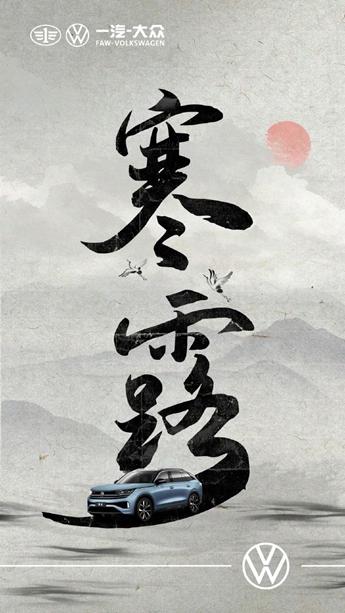 一汽-大众
FAW-VOLKSWAGEN
寒
露